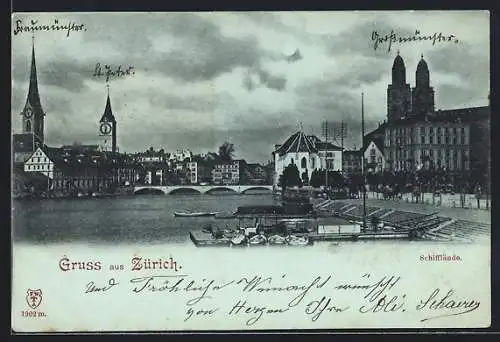 Fraumünster.
St. Peter.
Großmünster.
Gruss aus Zürich.
Schifflände.
Und Fröhliche Weinacht wünscht
von Herzen Ihre Ali. Schaerer
1902 m.